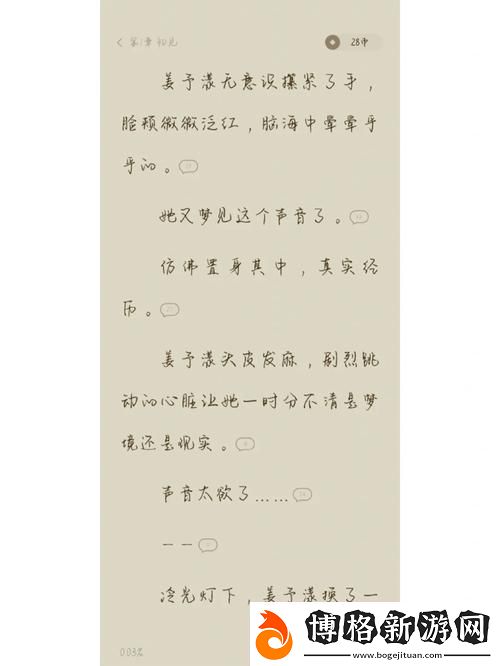 第1章 初见
28币
姜予漾无意识攥紧了手，
脸颊微微泛红，脑海中晕晕乎
乎的。
她又梦见这个声音了。
仿佛置身其中，真实经
历。
姜予漾头皮发麻，剧烈跳
动的心脏让她一时分不清是梦
境还是现实。
声音太欲了……
——
冷光灯下，姜予漾换了一
0.03%
博格新游网
www.bogejituan.com